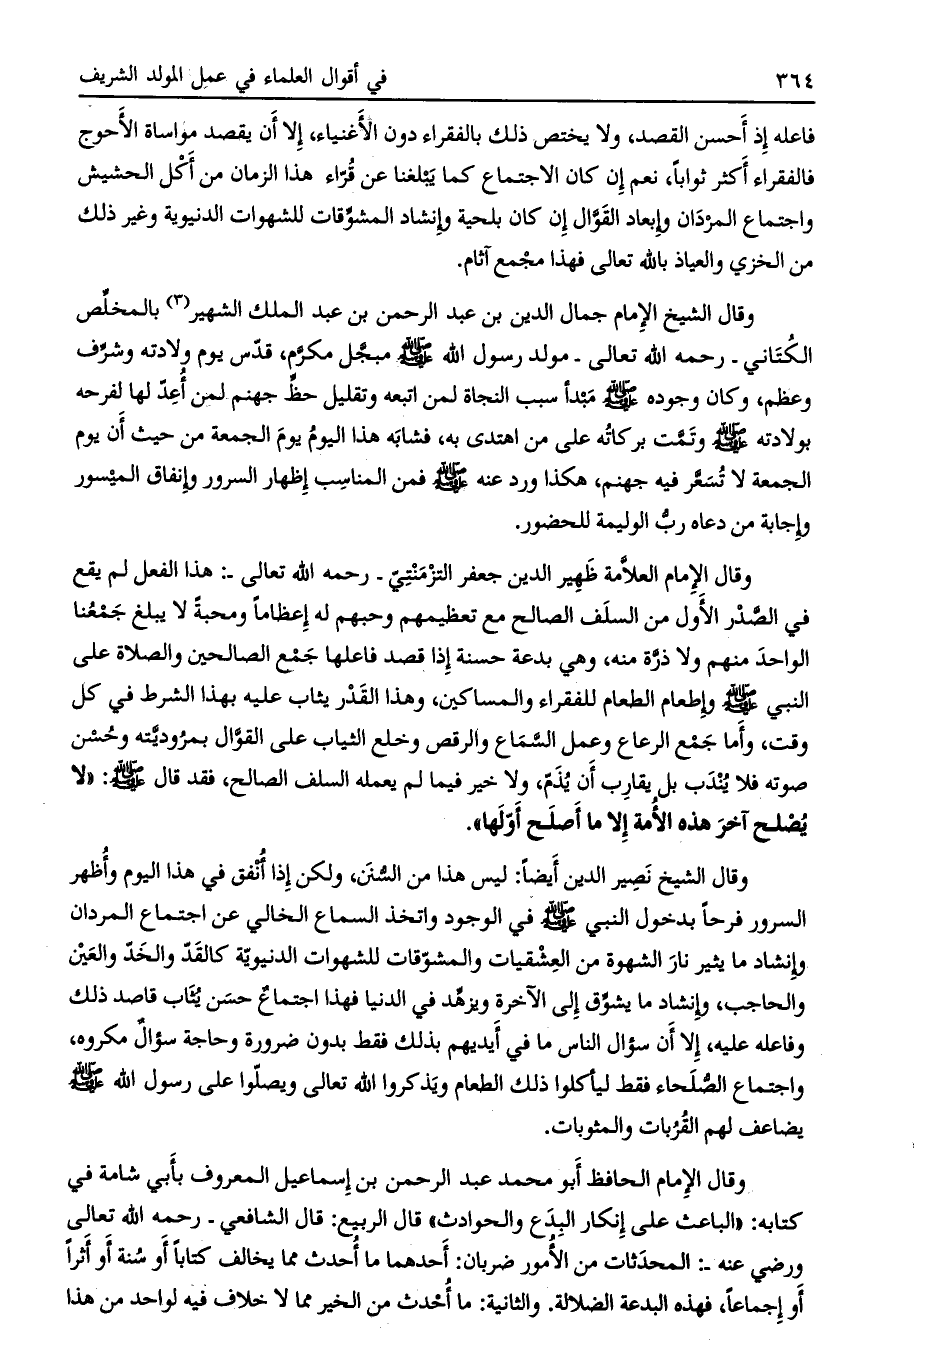 ٣٦٤ في أقوال العلماء في عمل المولد الشريف
فاعله إذ أَحسن القصد، ولا يختص ذلك بالفقراء دون الأَغنياء، إلا أن يقصد مواساة الأَحوج
فالفقراء أَكثر ثواباً، نعم إن كان الاجتماع كما يَبْلغنا عن قُرّاء هذا الزمان من أَكْل الحشيش
واجتماع المرْدَان وإبعاد القَوَّال إن كان بلحية وإنشاد المشوِّقات للشهوات الدنيوية وغير ذلك
من الخزي والعياذ بالله تعالى فهذا مجْمع آثام.
وقال الشيخ الإمام جمال الدين بن عبد الرحمن بن عبد الملك الشهير(٣) بالمخلّص
الكُتَاني ـ رحمه الله تعالى ـ مولد رسول الله ﷺ مبجَّل مكرَّم، قدّس يوم ولادته وشرَّف
وعظم، وكان وجوده ﷺ مَبْدأ سبب النجاة لمن اتبعه وتقليل حظّ جهنم لمن أُعِدّ لها لفرحه
بولادته ﷺ وتَمَّت بركاتُه على من اهتدى به، فشابَه هذا اليومُ يومَ الجمعة من حيث أَن يوم
الجمعة لا تُسَعَّر فيه جهنم، هكذا ورد عنه ﷺ فمن المناسِب إظهار السرور وإنفاق الميْسور
وإجابة من دعاه ربُّ الوليمة للحضور.
وقال الإمام العلاَّمة ظَهِير الدين جعفر التزْمَنْتِيّ ـ رحمه الله تعالى ـ: هذا الفعل لم يقع
في الصَّدْر الأَول من السلَف الصالح مع تعظيمهم وحبهم له إعظاماً ومحبةً لا يبلغ جَمْعُنا
الواحدَ منهم ولا ذرَّة منه، وهي بدعة حسنة إذا قصد فاعلها جَمْع الصالحين والصلاة على
النبي ﷺ وإطعام الطعام للفقراء والمساكين، وهذا القَدْر يثاب عليه بهذا الشرط في كل
وقت، وأما جَمْع الرعاع وعمل السَّمَاع والرقص وخلع الثياب على القوَّال بمرُوديَّته وحُسْن
صوته فلا يُنْدَب بل يقارِب أَن يُذَمّ، ولا خير فيما لم يعمله السلف الصالح، فقد قال ﷺ: «لا
يُصْلح آخرَ هذه الأُمة إلا ما أَصلَح أَوّلَها».
وقال الشيخ نَصِير الدين أَيضاً: ليس هذا من السُنَن، ولكن إذا أُنْفق في هذا اليوم وأُظهر
السرور فرحاً بدخول النبي ﷺ في الوجود واتخذ السماع الخالي عن اجتماع المردان
وإنشاد ما يثير نارَ الشهوة من العِشْقيات والمشوّقات للشهوات الدنيويّة كالقَدّ والخَدّ والعَيْن
والحاجب، وإنشاد ما يشوِّق إلى الآخرة ويزهِّد في الدنيا فهذا اجتماعٌ حسَن يُثَاب قاصد ذلك
وفاعله عليه، إلا أَن سؤال الناس ما في أَيديهم بذلك فقط بدون ضرورة وحاجة سؤالٌ مكروه،
واجتماع الصُّلَحاء فقط ليأكلوا ذلك الطعام ويَذكروا الله تعالى ويصلّوا على رسول الله ﷺ
يضاعف لهم القُرُبات والمثوبات.
وقال الإمام الحافظ أَبو محمد عبد الرحمن بن إسماعيل المعروف بأَبي شامة في
كتابه: «الباعث على إنكار البِدَع والحوادث» قال الربيع: قال الشافعي ـ رحمه الله تعالى
ورضي عنه ـ: المحدَثات من الأُمور ضربان: أَحدهما ما أُحدث مما يخالف كتاباً أَو سُنة أَو أَثراً
أَو إجماعاً، فهذه البدعة الضلالة. والثانية: ما أُحْدث من الخير مما لا خلاف فيه لواحد من هذا